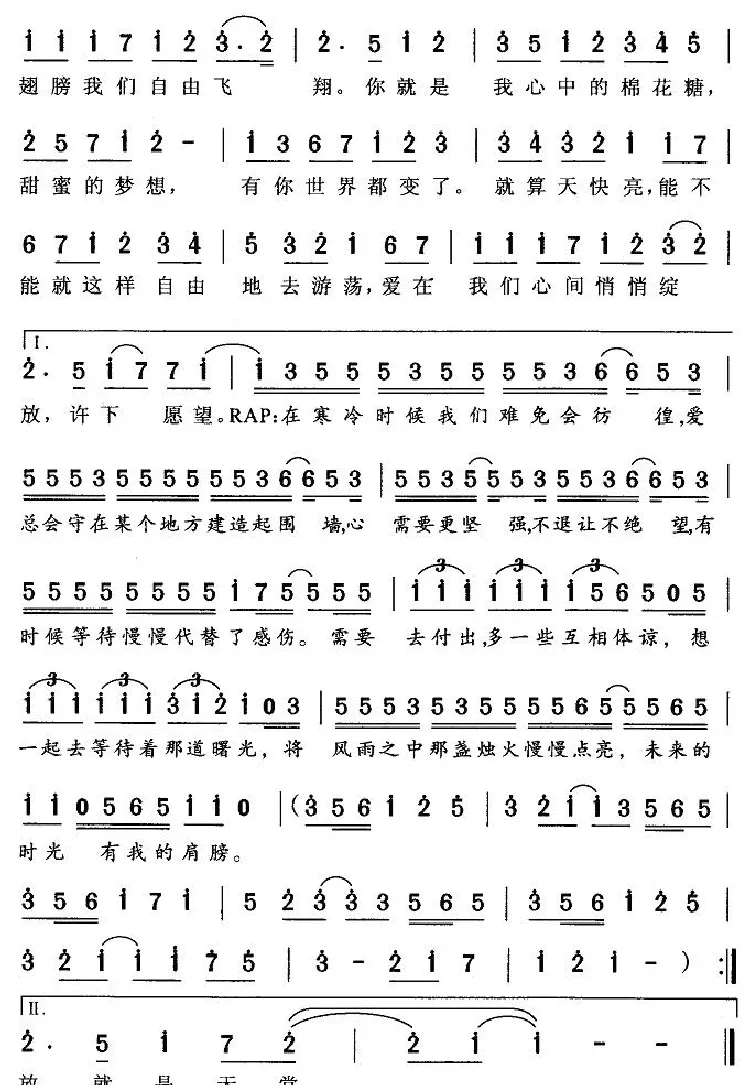 1 1 1 7 1 2 3 · 2 | 2 · 5 1 2 | 3 5 1 2 3 4 5 |
翅膀我们自由飞 翔。你就是 我心中的棉花糖,
2 5 7 1 2 – | 1 3 6 7 1 2 3 | 3 4 3 2 1 1 7 |
甜蜜的梦想, 有你世界都变了。就算天快亮,能不
6 7 1 2 3 4 | 5 3 2 1 6 7 | 1 1 1 7 1 2 3 2 |
能就这样自由 地去游荡,爱在 我们心间悄悄绽
I.
2 · 5 1 7 7 1 | 1 3 5 5 5 3 5 5 5 5 3 6 6 5 3
放,许下 愿望。RAP:在寒冷时候我们难免会彷 徨,爱
5 5 5 3 5 5 5 5 5 5 3 6 6 5 3 | 5 5 3 5 5 5 3 5 5 3 6 6 5 3 |
总会守在某个地方建造起围 墙,心 需要更坚 强,不退让不绝 望,有
5 5 5 5 5 5 5 5 1 7 5 5 5 5 5 | 3 1 1 1 3 1 1 1 3 1 5 6 5 0 5 |
时候等待慢慢代替了感伤。需要 去付出,多一些互相体谅,想
3 1 1 1 3 1 1 1 3 3 1 2 1 0 3 | 5 5 5 3 5 3 5 5 5 5 6 5 5 5 6 5 |
一起去等待着那道曙光,将 风雨之中那盏烛火慢慢点亮,未来的
1 1 0 5 6 5 1 1 0 | ( 3 5 6 1 2 5 | 3 2 1 1 3 5 6 5 |
时光 有我的肩膀。
3 5 6 1 7 1 | 5 2 3 3 3 5 6 5 | 3 5 6 1 2 5 |
3 2 1 1 1 7 5 | 3 – 2 1 7 | 1 2 1 – ) :|
II.
2 · 5 1 7 2 | 2 1 1 – –
放 就是天堂